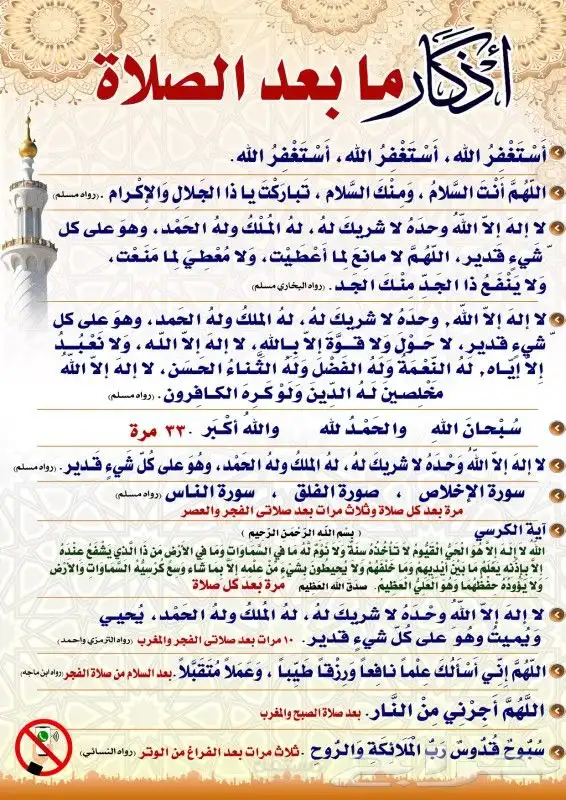 أذكار ما بعد الصلاة
أَسْتَغْفِرُ الله، أَسْتَغْفِرُ الله، أَسْتَغْفِرُ الله.
اللَّهُمَّ أَنْتَ السَّلامُ ، وَمِنْكَ السَّلام ، تَبارَكْتَ يا ذا الجَلالِ وَالإِكْرام .(رواه مسلم)
لا إلهَ إلاّ اللهُ وحدَهُ لا شريكَ لهُ، لهُ المُلْكُ ولهُ الحَمْد، وهوَ على كل
ّ شَيءٍ قَدير، اللّهُمَّ لا مانِعَ لِما أَعْطَيْت، وَلا مُعْطِيَ لِما مَنَعْت،
وَلا يَنْفَعُ ذا الجَدِّ مِنْكَ الجَد . (رواه البخاري مسلم)
لا إلهَ إلاّ اللّه, وحدَهُ لا شريكَ لهُ، لهُ الملكُ ولهُ الحَمد، وهوَ على كل
ّ شيءٍ قدير، لا حَـوْلَ وَلا قـوَّةَ إِلاّ بِـاللهِ، لا إلهَ إلاّ اللّـه، وَلا نَعْـبُـدُ
إِلاّ إيّـاه, لَهُ النِّعْمَةُ وَلَهُ الفَضْل وَلَهُ الثَّـناءُ الحَسَن، لا إلهَ إلاّ اللهُ
مخْلِصـينَ لَـهُ الدِّينَ وَلَوْ كَـرِهَ الكـافِرون. (رواه مسلم)
سُـبْحانَ اللهِ والحمْـدُ لله واللهُ أكْـبَر . ٣٣ مرة
لا إلهَ إلاّ اللّهُ وَحْـدَهُ لا شريكَ لهُ، لهُ الملكُ ولهُ الحَمْد، وهُوَ على كُلّ شَيءٍ قَـدير.(رواه مسلم)
سورة الإخلاص ، صورة الفلق ، سورة الناس (رواه مسلم)
مرة بعد كل صلاة وثلاث مرات بعد صلاتى الفجر والعصر
آية الكرسي ( بِسْمِ اللَّـهِ الرَّحْمَنِ الرَّحِيمِ )
الله لا إلـهَ إلاّ هوَ الحَيُّ القَيّومُ لا تَأخُذُهُ سِنَةٌ ولا نَوْمٌ لَهُ مَا فِي السَّمَاوَاتِ وَمَا فِي الأَرْضِ مَن ذَا الَّذِي يَشْفَعُ عِنْدَهُ
إِلاَّ بِإِذْنِهِ يَعْلَمُ مَا بَيْنَ أَيْدِيهِمْ وَمَا خَلْفَهُمْ وَلاَ يُحِيطُونَ بِشَيْءٍ مِّنْ عِلْمِهِ إِلاَّ بِمَا شَاء وَسِعَ كُرْسِيُّهُ السَّمَاوَاتِ وَالأَرْضَ
وَلاَ يَؤُودُهُ حِفْظُهُمَا وَهُوَ الْعَلِيُّ الْعَظِيمُ. صدق الله العظيم مرة بعد كل صلاة
لا إلهَ إلاّ اللّهُ وحْـدَهُ لا شريكَ لهُ، لهُ الملكُ ولهُ الحَمْد، يُحيـي
وَيُميتُ وهُوَ على كُلّ شيءٍ قدير. ١٠ مرات بعد صلاتى الفجر والمغرب (رواه الترمزي واحمد)
اللّهُمَّ إِنِّي أَسْأَلُكَ عِلْماً نافِعاً وَرِزْقاً طَيِّباً ، وَعَمَلاً مُتَقَبَّلاً .بعد السلام من صلاة الفجر(رواه ابن ماجه)
اللَّهُمَّ أَجِرْنِي مِنْ النَّار. بعد صلاة الصبح والمغرب
سُبُّوحٌ قُدُّوسٌ رَبُّ المَلَائِكَةِ وَالرُّوحِ . ثلاث مرات بعد الفراغ من الوتر (رواه النسائي)